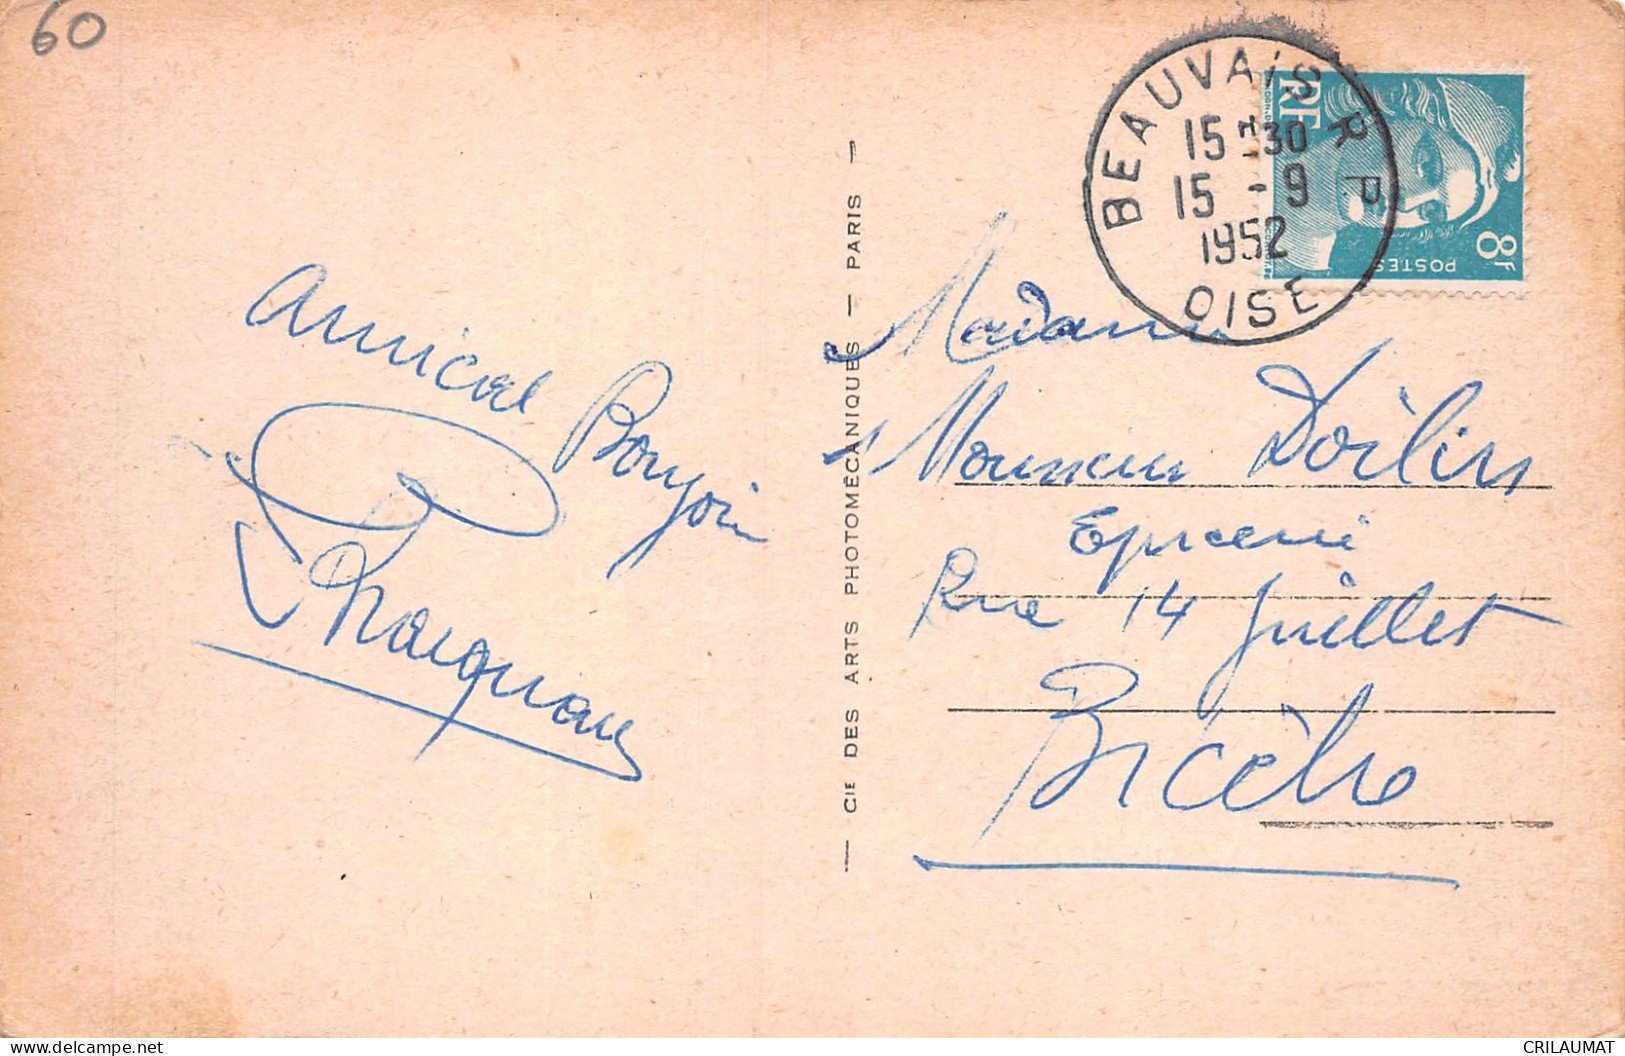 60
BEAUVAIS R P
15 H 30
15 - 9
1952
OISE
RF
8F
POSTES
Amical Bonjour
— CIE DES ARTS PHOTOMÉCANIQUES — PARIS —
Madame
Monsieur
Epicerie
Rue 14 Juillet
Bicêtre
CRILAUMAT